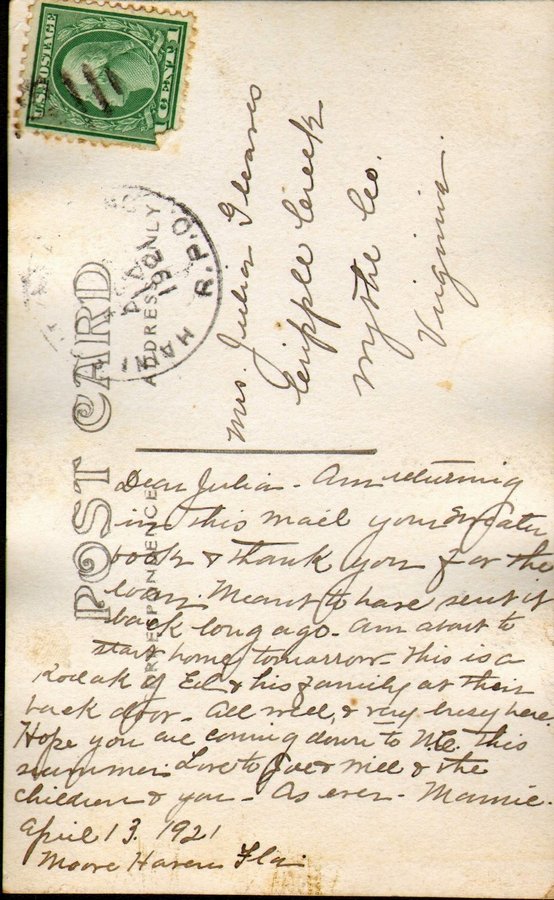 U.S. POSTAGE
1 CENT 1
POST CARD
ADDRESS ONLY
CORRESPONDENCE
HARR
R.P.O.
1921
Mrs. Julia Gleaves
Cripple Creek
Wythe Co.
Virginia.
Dear Julia - Am returning
in this mail your Sweater
book & thank you for the
loan. Meant to have sent it
back long ago - am about to
start home tomorrow - This is a
Kodak of Ed & his family at their
back door - All well, & very busy here.
Hope you are coming down to Me. this
summer. Love to Joe & Will & the
children & you - As ever - Mamie.
April 13. 1921
Moore Haven Fla.